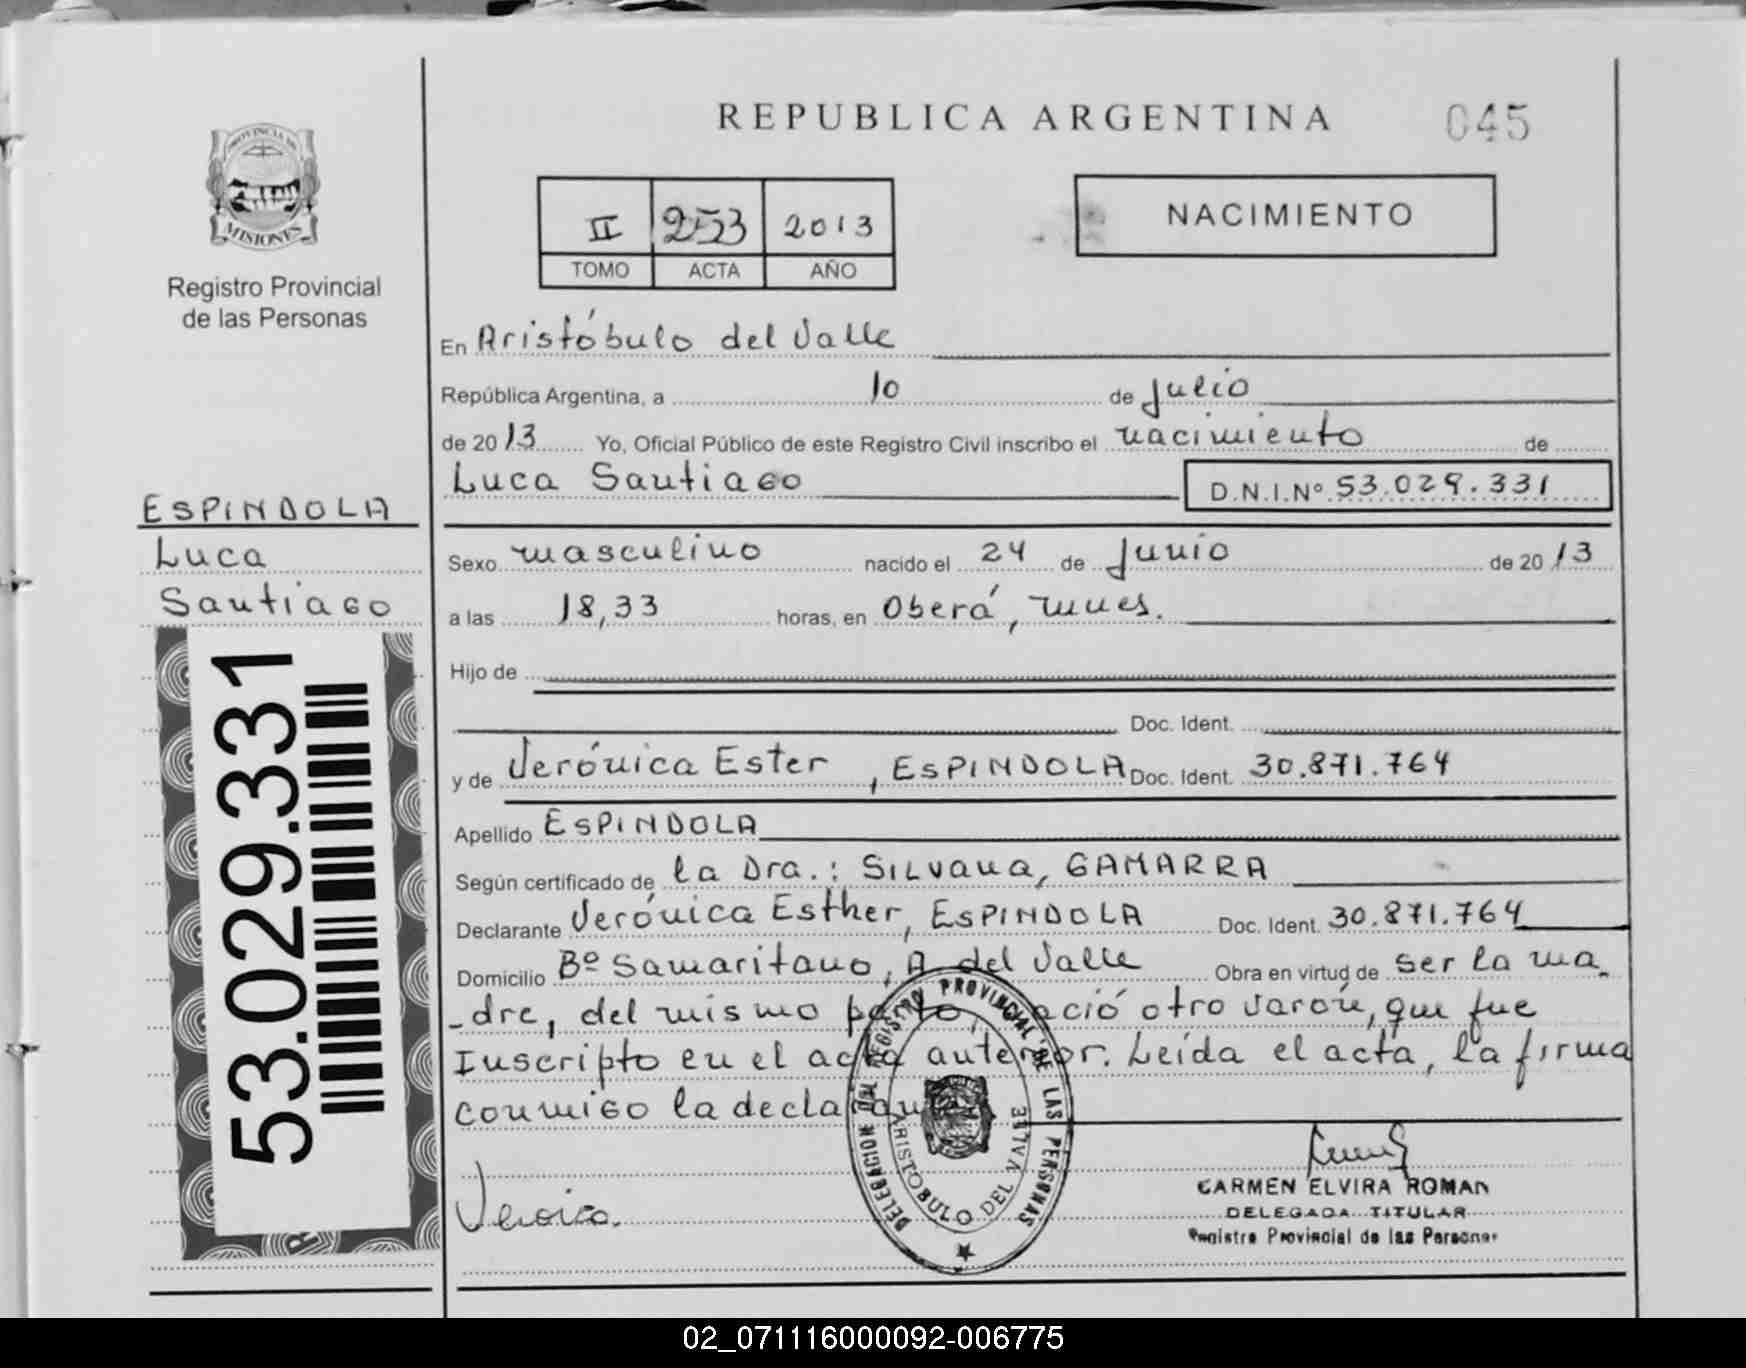 REPUBLICA ARGENTINA
045
PROVINCIA DE
MISIONES
Registro Provincial
de las Personas
II 253 2013
TOMO ACTA AÑO
NACIMIENTO
En Aristóbulo del Valle
República Argentina, a 10 de Julio
de 2013 Yo, Oficial Público de este Registro Civil inscribo el nacimiento de
Luca Santiago D.N.I.Nº 53.029.331
ESPINDOLA
Luca
Santiago
53.029.331
Sexo masculino nacido el 24 de Junio de 2013
a las 18,33 horas, en Oberá,
Hijo de
Doc. Ident.
y de Verónica Ester, ESPINDOLA Doc. Ident. 30.871.764
Apellido ESPINDOLA
Según certificado de la Dra.: SILVANA, GAMARRA
Declarante Verónica Esther, ESPINDOLA Doc. Ident. 30.871.764
Domicilio Bº Samaritano, A. del Valle Obra en virtud de ser la ma
-dre, del mismo parto, nació otro varón, que fue
Inscripto en el acta anterior. Leída el acta, la firma
conmigo la declarante
DELEGACION DEL REGISTRO PROVINCIAL DE LAS PERSONAS
ARISTOBULO DEL VALLE
CARMEN ELVIRA ROMAN
DELEGADA TITULAR
Registro Provincial de las Personas
02_071116000092-006775